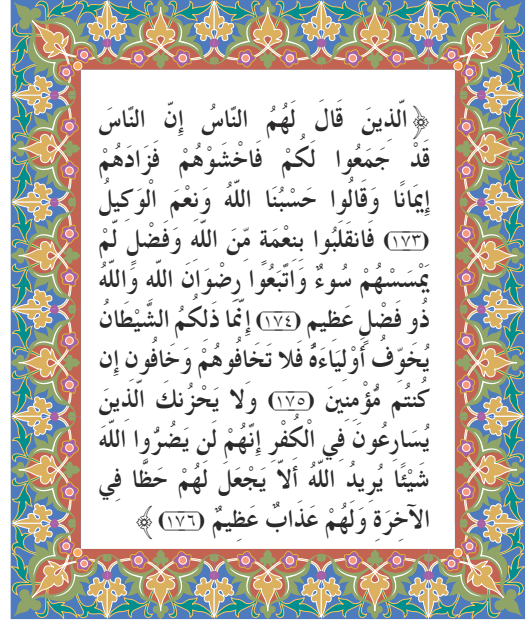 ﴿الّذِينَ قَالَ لَهُمُ النّاسُ إِنّ النّاسَ
قَدْ جَمَعُوا لَكُمْ فَاخْشَوْهُمْ فَزَادَهُمْ
إِيمَانًا وَقَالُوا حَسْبُنَا اللّهُ وَنِعْمَ الْوَكِيلُ
(١٧٣) فَانقَلَبُوا بِنِعْمَةٍ مّنَ اللّهِ وَفَضْلٍ لّمْ
يَمْسَسْهُمْ سُوءٌ وَاتّبَعُوا رِضْوَانَ اللّهِ وَاللّهُ
ذُو فَضْلٍ عَظِيمٍ (١٧٤) إِنّمَا ذَلِكُمُ الشّيْطَانُ
يُخَوّفُ أَوْلِيَاءَهُ فَلا تَخَافُوهُمْ وَخَافُونِ إِن
كُنتُم مّؤْمِنِينَ (١٧٥) وَلا يَحْزُنكَ الّذِينَ
يُسَارِعُونَ فِي الْكُفْرِ إِنّهُمْ لَن يَضُرُّوا اللّهَ
شَيْئًا يُرِيدُ اللّهُ أَلاّ يَجْعَلَ لَهُمْ حَظًّا فِي
الآخِرَةِ وَلَهُمْ عَذَابٌ عَظِيمٌ (١٧٦)﴾